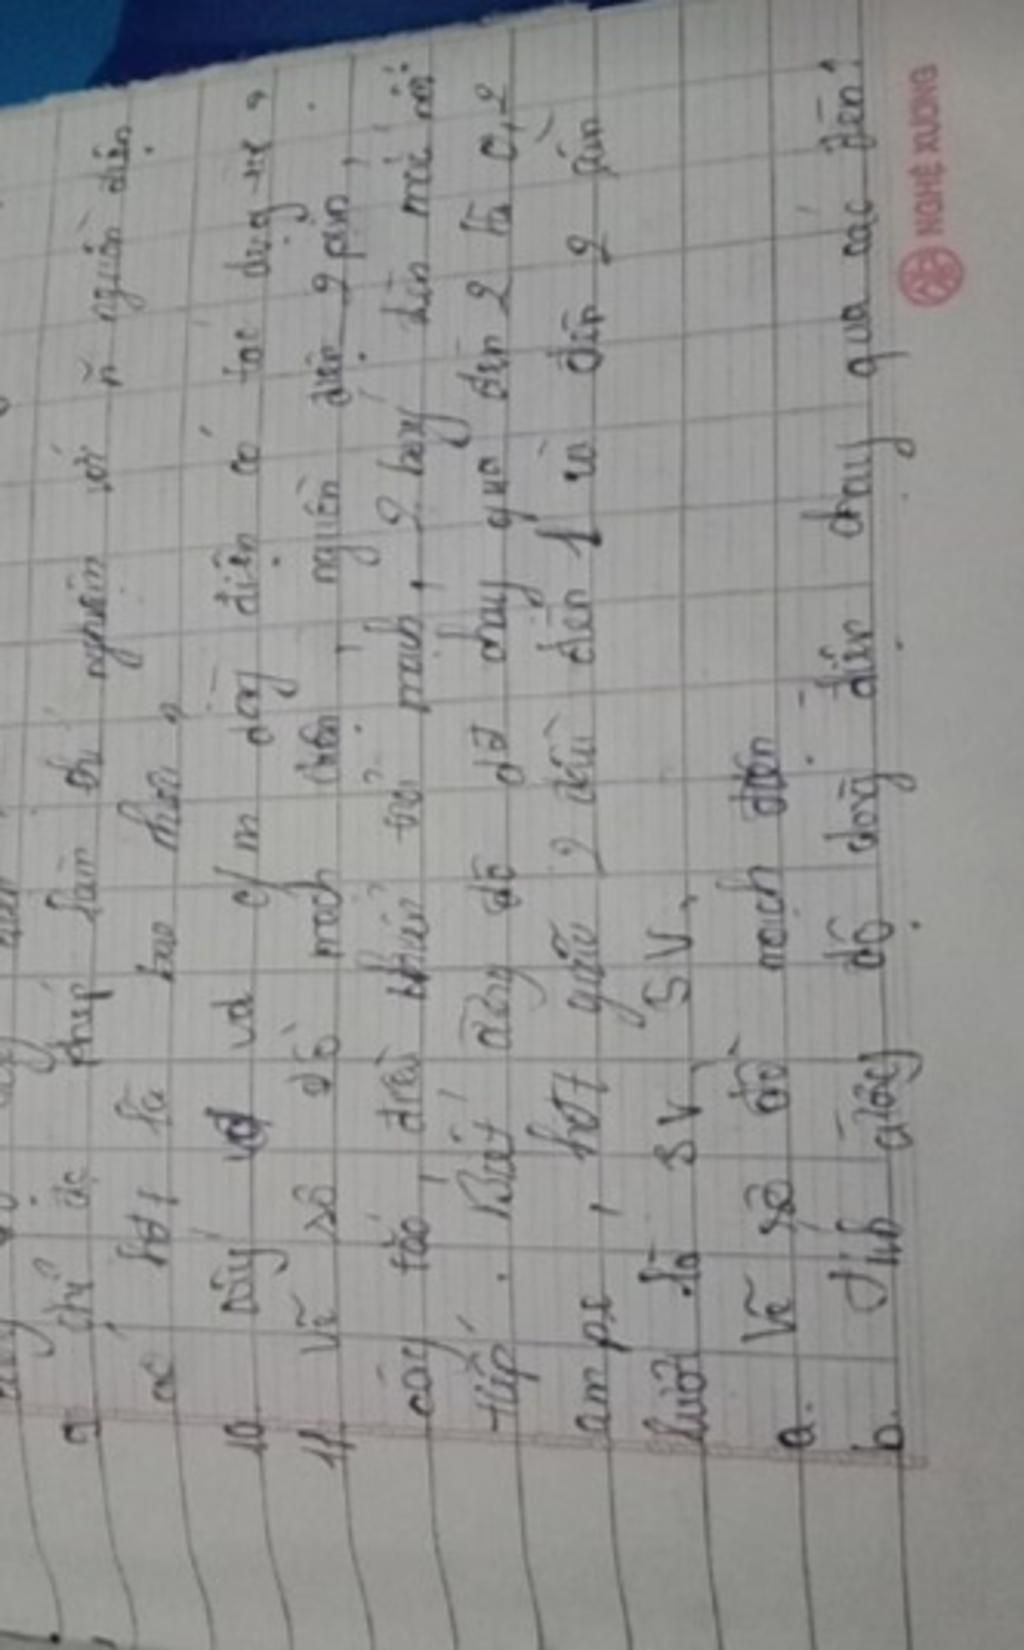 9 chỉ được phép làm thí nghiệm với n nguồn điện
có hđt là bao nhiêu ?
10 Lấy vd c/m dòng điện có tác dụng từ ?
11 Vẽ sơ đồ mạch điện, nguồn điện 2 pin,
công tắc, điều khiển toàn mạch, 2 bóng đèn mắc nối
tiếp. Biết cường độ dđ chạy qua đèn 2 là 0,2
ampe, hđt giữa 2 đầu đèn 1 và đèn 2 lần
lượt là 3V, 3V,
a. Vẽ sơ đồ mạch điện
b. Tính cường độ dòng điện chạy qua các đèn?
NGHỆ XƯƠNG